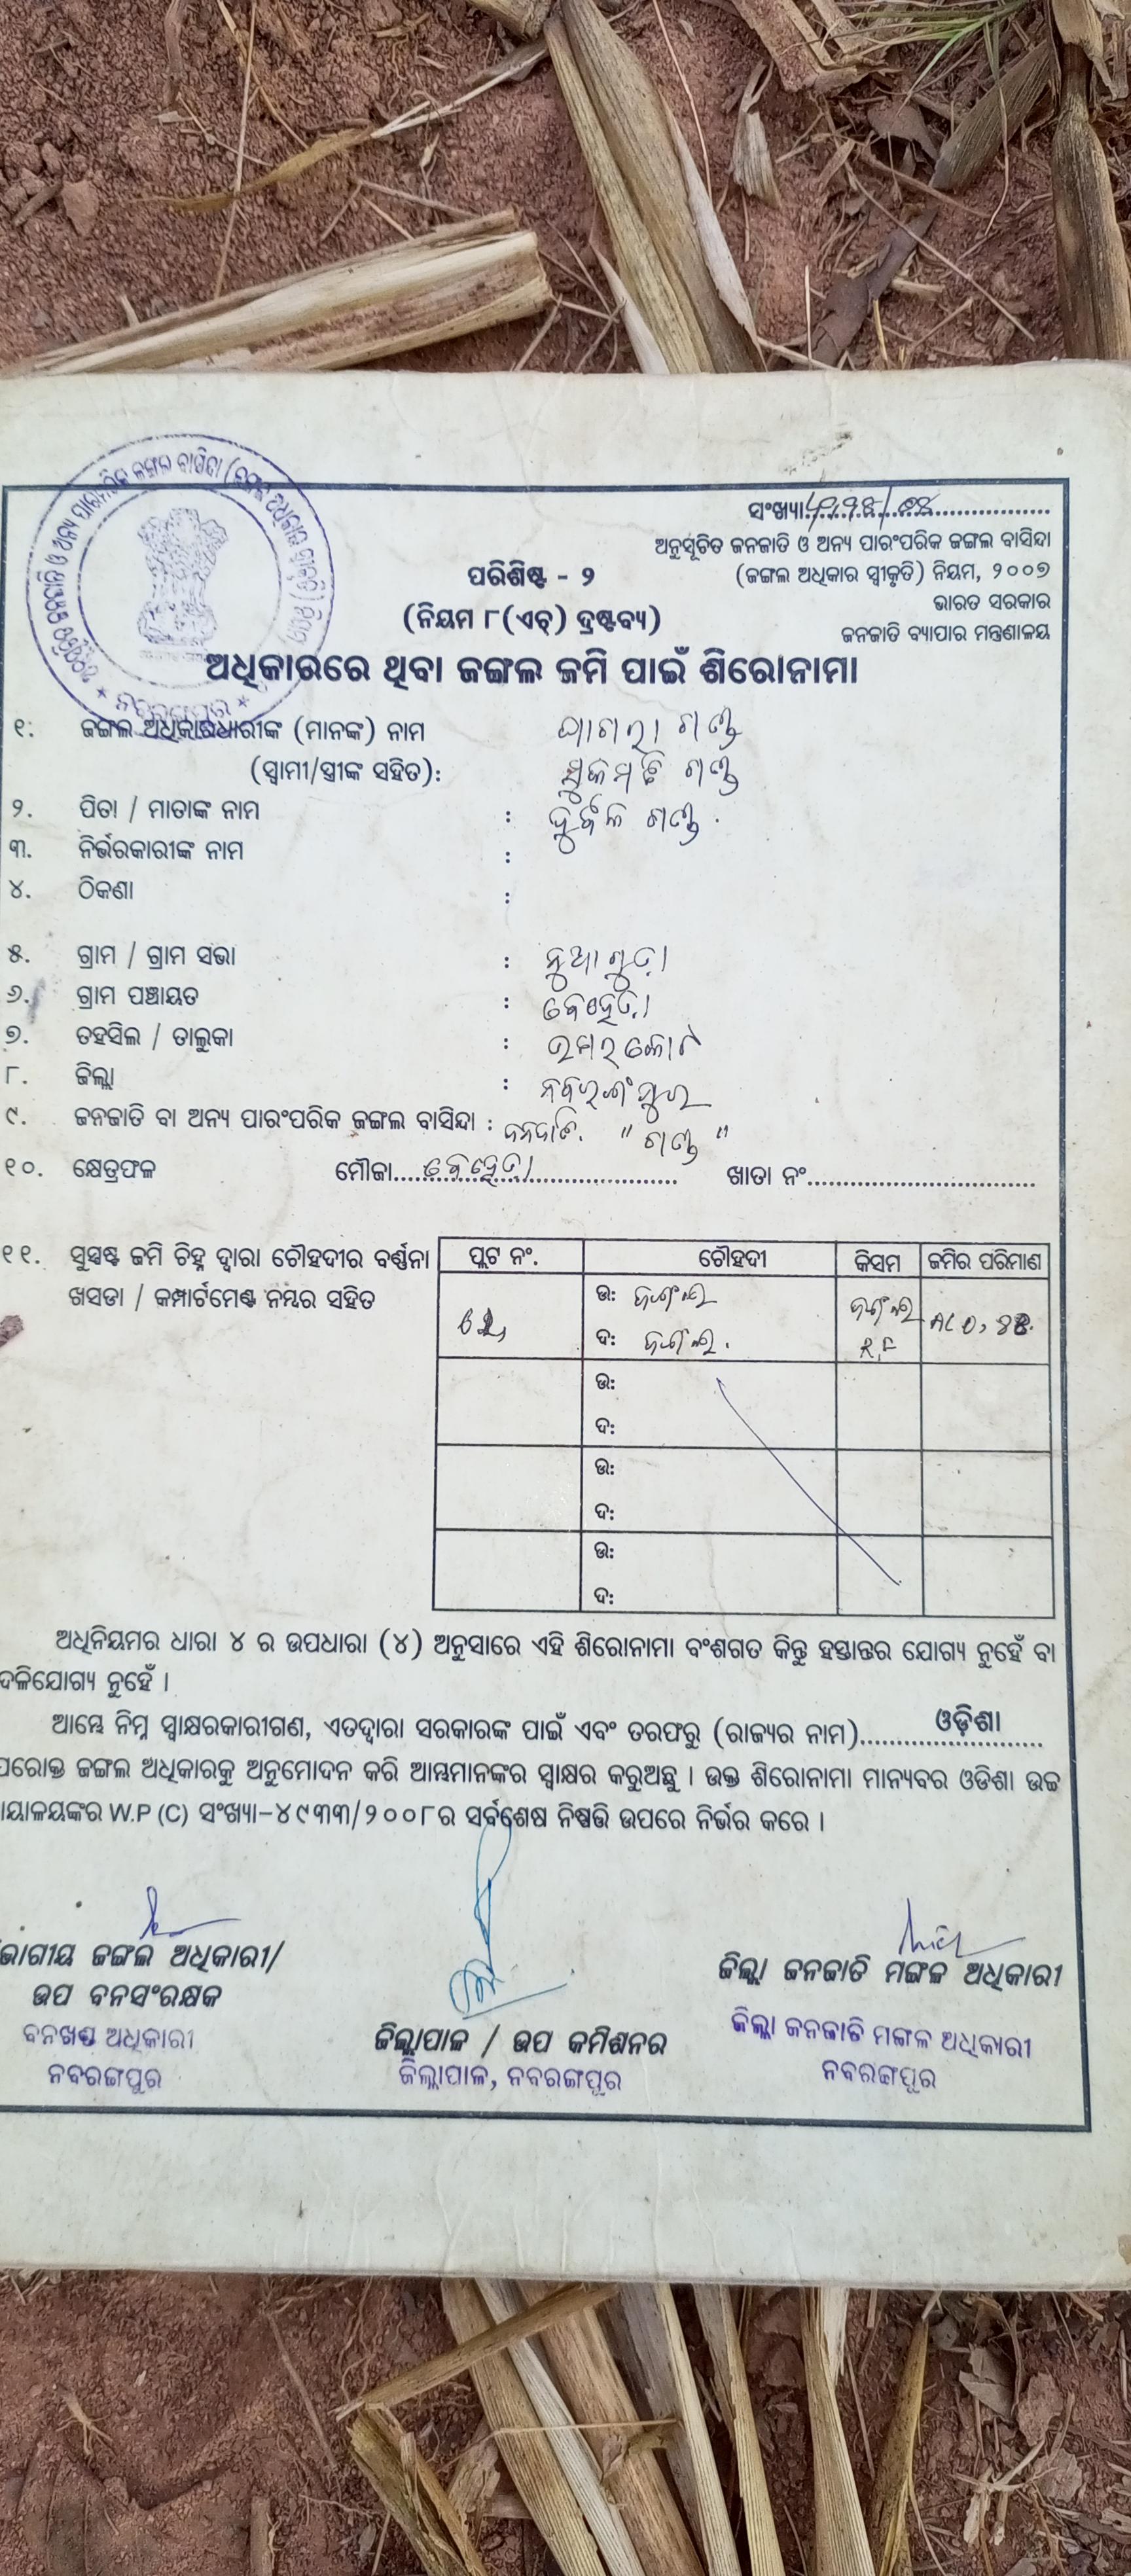 ସଂଖ୍ୟା
ଅନୁସୂଚିତ ଜନଜାତି ଓ ଅନ୍ୟ ପାରଂପରିକ ଜଙ୍ଗଲ ବାସିନ୍ଦା
(ଜଙ୍ଗଲ ଅଧିକାର ସ୍ୱୀକୃତି) ନିୟମ, ୨୦୦୭
ଭାରତ ସରକାର
ଜନଜାତି ବ୍ୟାପାର ମନ୍ତ୍ରଣାଳୟ
ପରିଶିଷ୍ଟ - ୨
(ନିୟମ ୮(ଏଚ୍) ଦ୍ରଷ୍ଟବ୍ୟ)
ଅଧିକାରରେ ଥିବା ଜଙ୍ଗଲ ଜମି ପାଇଁ ଶିରୋନାମା
ନବରଙ୍ଗପୁର
୧. ଜଙ୍ଗଲ ଅଧିକାରଧାରୀଙ୍କ (ମାନଙ୍କ) ନାମ ଗଣ୍ଡ
(ସ୍ୱାମୀ/ସ୍ତ୍ରୀଙ୍କ ସହିତ): ଗଣ୍ଡ
୨. ପିତା / ମାତାଙ୍କ ନାମ : ଗଣ୍ଡ
୩. ନିର୍ଭରକାରୀଙ୍କ ନାମ :
୪. ଠିକଣା :
୫. ଗ୍ରାମ / ଗ୍ରାମ ସଭା : ନୁଆଗୁଡ଼ା
୬. ଗ୍ରାମ ପଞ୍ଚାୟତ : ବେହେଡ଼ା
୭. ତହସିଲ / ତାଲୁକା : ଉମରକୋଟ
୮. ଜିଲ୍ଲା : ନବରଂଗପୁର
୯. ଜନଜାତି ବା ଅନ୍ୟ ପାରଂପରିକ ଜଙ୍ଗଲ ବାସିନ୍ଦା : ଜନଜାତି. " ଗଣ୍ଡ "
୧୦. କ୍ଷେତ୍ରଫଳ ମୌଜା ବେହେଡ଼ା ଖାତା ନଂ
୧୧. ସୁସ୍ପଷ୍ଟ ଜମି ଚିହ୍ନ ଦ୍ୱାରା ଚୌହଦୀର ବର୍ଣ୍ଣନା
ଖସଡା / କମ୍ପାର୍ଟମେଣ୍ଟ ନମ୍ୱର ସହିତ
ପ୍ଲଟ ନଂ. ଚୌହଦୀ କିସମ ଜମିର ପରିମାଣ
ଉ: ଜଙ୍ଗଲ ଜଙ୍ଗଲ
ଦ: ଜଙ୍ଗଲ. R.F
ଉ:
ଦ:
ଉ:
ଦ:
ଉ:
ଦ:
ଅଧିନିୟମର ଧାରା ୪ ର ଉପଧାରା (୪) ଅନୁସାରେ ଏହି ଶିରୋନାମା ବଂଶଗତ କିନ୍ତୁ ହସ୍ତାନ୍ତର ଯୋଗ୍ୟ ନୁହେଁ ବା
ଦଳିଯୋଗ୍ୟ ନୁହେଁ ।
ଆମ୍ଭେ ନିମ୍ନ ସ୍ୱାକ୍ଷରକାରୀଗଣ, ଏତଦ୍ୱାରା ସରକାରଙ୍କ ପାଇଁ ଏବଂ ତରଫରୁ (ରାଜ୍ୟର ନାମ) ଓଡ଼ିଶା
ପରୋକ୍ତ ଜଙ୍ଗଲ ଅଧିକାରକୁ ଅନୁମୋଦନ କରି ଆମ୍ଭମାନଙ୍କର ସ୍ୱାକ୍ଷର କରୁଅଛୁ । ଉକ୍ତ ଶିରୋନାମା ମାନ୍ୟବର ଓଡିଶା ଉଚ୍ଚ
ାୟାଳୟଙ୍କର W.P (C) ସଂଖ୍ୟା-୪୯୩୩/୨୦୦୮ର ସର୍ବଶେଷ ନିଷ୍ପତ୍ତି ଉପରେ ନିର୍ଭର କରେ ।
ଭାଗୀୟ ଜଙ୍ଗଲ ଅଧିକାରୀ/
ଉପ ବନସଂରକ୍ଷକ
ବନଖଣ୍ଡ ଅଧିକାରୀ
ନବରଙ୍ଗପୁର
ଜିଲ୍ଲାପାଳ / ଉପ କମିଶନର
ଜିଲ୍ଲାପାଳ, ନବରଙ୍ଗପୁର
ଜିଲ୍ଲା ଜନଜାତି ମଙ୍ଗଳ ଅଧିକାରୀ
ଜିଲ୍ଲା ଜନଜାତି ମଙ୍ଗଳ ଅଧିକାରୀ
ନବରଙ୍ଗପୁର